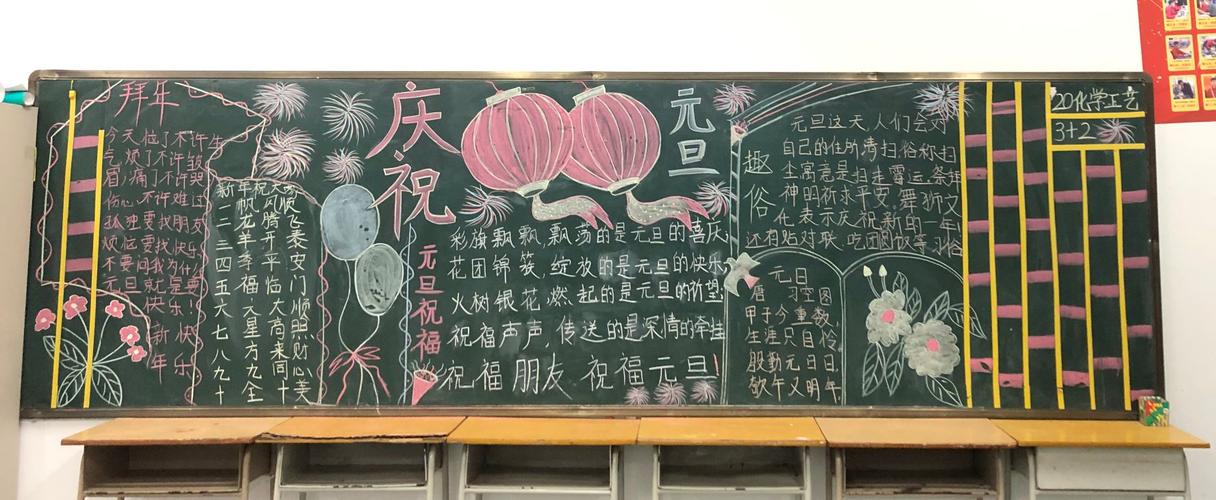 拜年
今天忙了不许生
气 烦了不许皱
眉 痛了不许哭
伤心不许难过
孤独要找朋友
烦恼要找快乐
不要问我为什么
元旦就是
快乐!
新年快乐
新年祝大家
一帆风顺
二龙腾飞
三羊开泰
四季平安
五福临门
六六大顺
七星高照
八方来财
九九同心
十全十美
庆祝
元旦
元旦祝福
彩旗飘飘,飘荡的是元旦的喜庆
花团锦簇,绽放的是元旦的快乐
火树银花,燃起的是元旦的祈望
祝福声声,传送的是深情的牵挂
祝福朋友 祝福元旦!
趣俗
元旦这天,人们会对
自己的住所清扫,俗称扫
尘寓意是扫走霉运,祭拜
神明祈求平安。舞狮文
化表示庆祝新的一年!
还有贴对联、吃团圆饭等习俗
元日
唐 司空图
甲子今重数,
生涯只自怜。
殷勤元日日,
欹午又明年。
20化学工艺
3+2